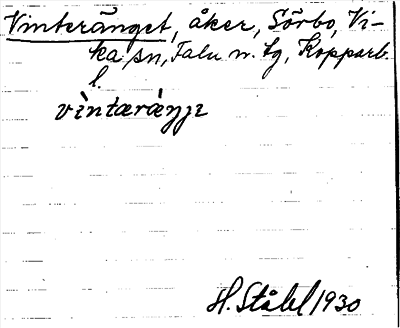 Vinteränget, åker, Sörbo, Vi-
ka sn, Falu n. tg, Kopparb.
l.
vìntæræ̀ŋʒɪ
H. Ståhl 1930